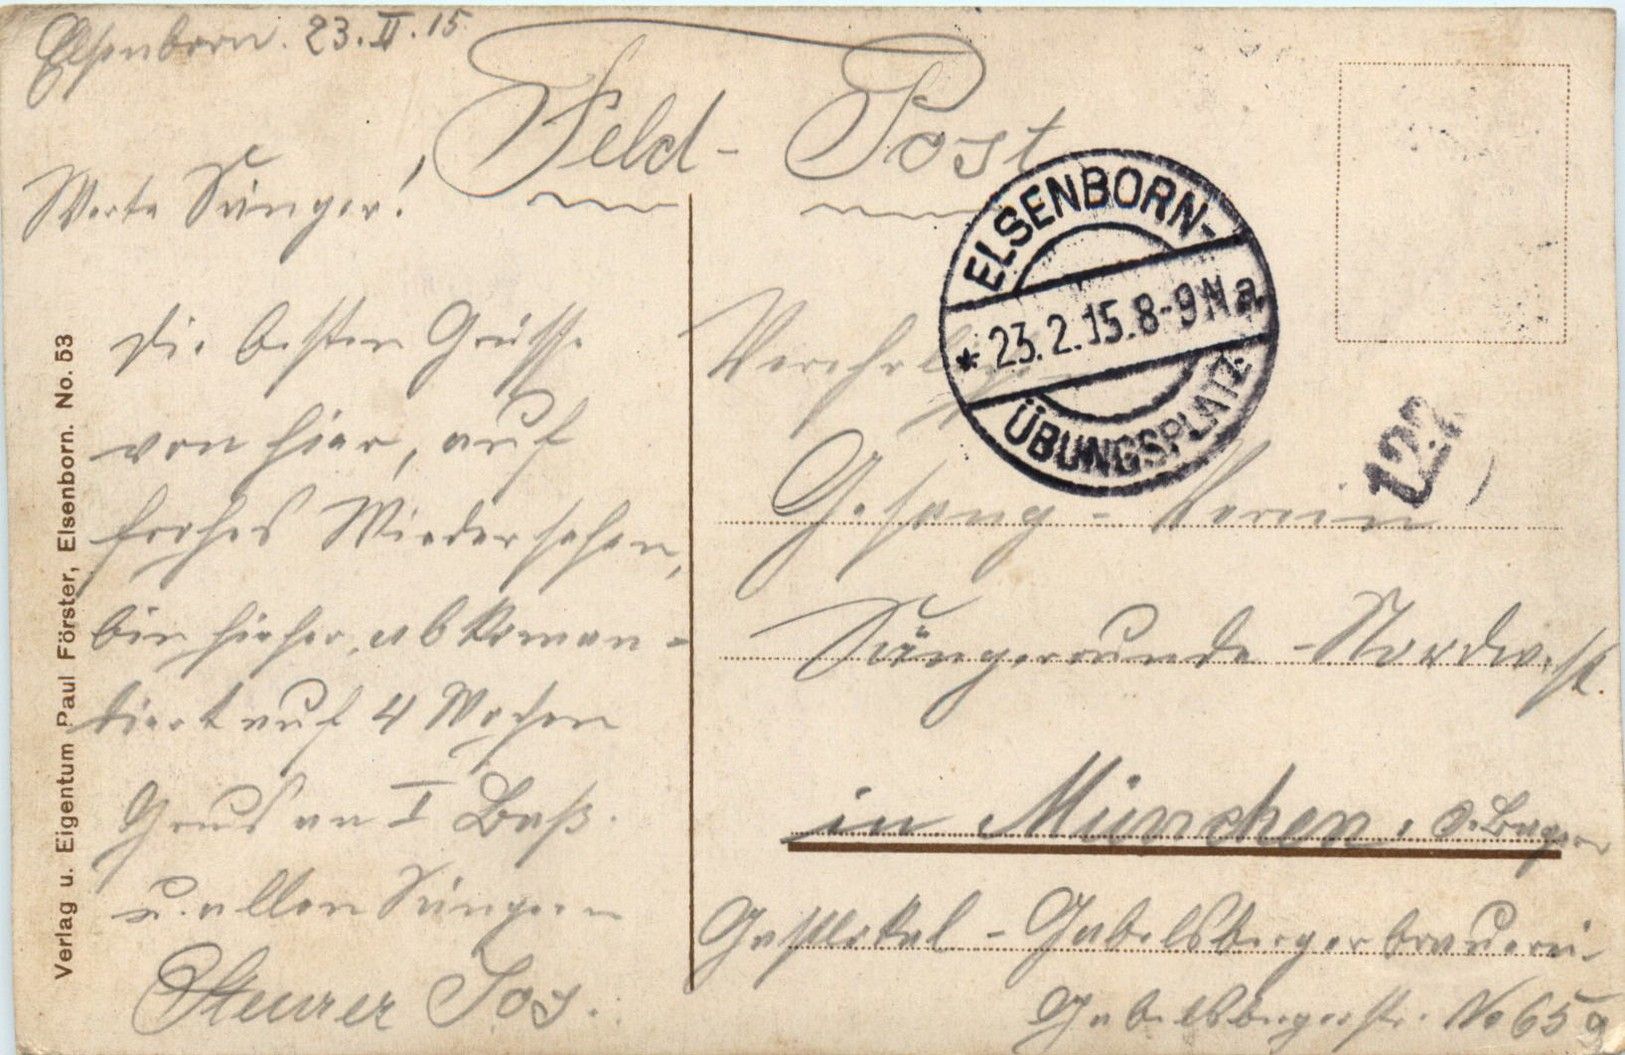 Elsenborn. 23.II.15.
Feld-Post
Werte Sänger!
Die besten Grüsse
von hier, auf
frohes Wiedersehen,
bin hieher abkoman=
diert auf 4 Wochen
Grus an I Baß.
u. allen Sängern
Steurer Jos.
Verehrl.
Gesang-Verein
Sängerrunde-Nordwest.
in München.
Gastlokal-Gabelsbergerbrauerei.
Gabelsbergerstr. No 65
ELSENBORN-
* 23.2.15.8-9N a.
ÜBUNGSPLATZ.
127
Verlag u. Eigentum Paul Förster, Elsenborn. No. 53